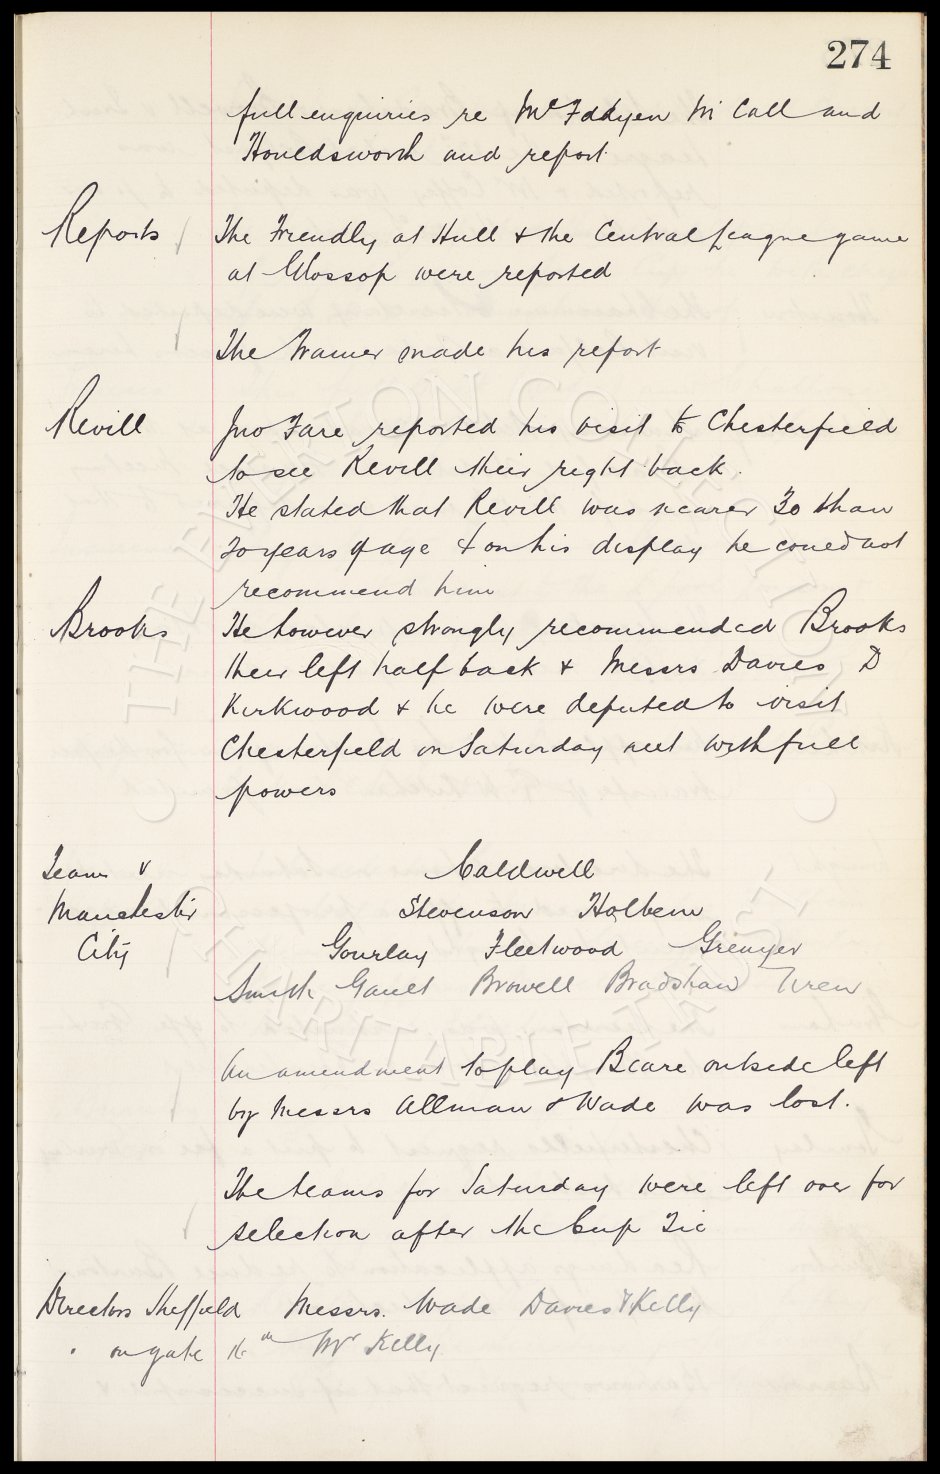 274
full enquiries re McFadyen McCall and
Houldsworth and report.
Reports The Friendly at Hull & the Central League game
at Glossop were reported
The Trainer made his report
Revill Jno Fare reported his visit to Chesterfield
to see Revill their right back.
He stated that Revill was nearer 30 than
20 years of age & on his display he could not
recommend him
Brooks He however strongly recommended Brooks
their left half back & Messrs Davies, D
Kirkwood & he were deputed to visit
Chesterfield on Saturday next with full
powers
Team v Caldwell
Manchester Stevenson Holbem
City Gourlay Fleetwood Grenyer
Smith Gault Browell Bradshaw Uren
An amendment to play Beare outside left
by Messrs Allman & Wade was lost.
The teams for Saturday were left over for
selection after the Cup Tie
Directors Sheffield Messrs. Wade Davies & Kelly
" on gate Mr Kelly